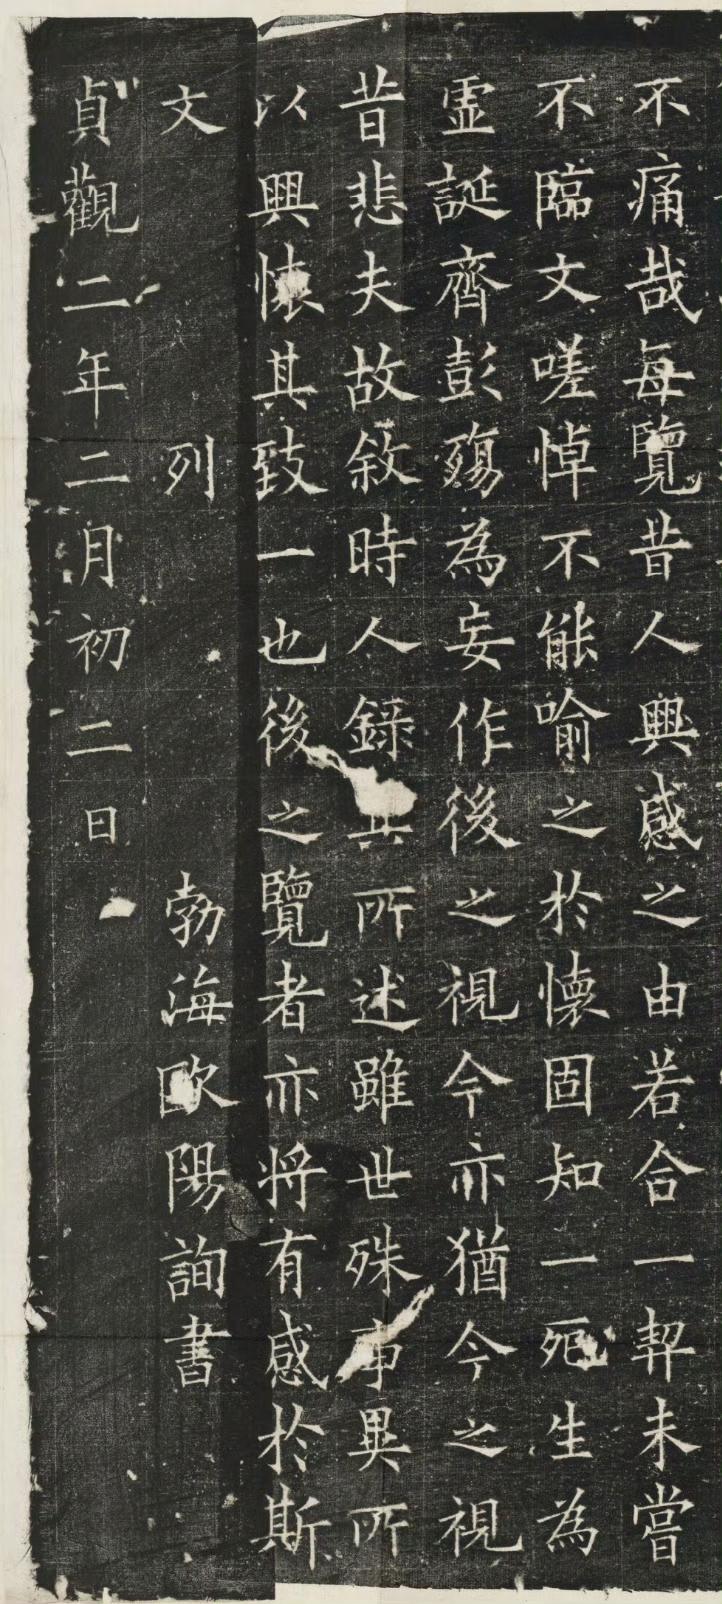 不痛哉每覽昔人興感之由若合一契未嘗
不臨文嗟悼不能喻之扵懷固知一死生為
虛誕齊彭殤為妄作後之視今亦猶今之視
昔悲夫故敘時人錄其所述雖世殊事異所
以興懷其致一也後之覽者亦将有感扵斯
文 列 勃海歐陽詢書
貞觀二年二月初二日